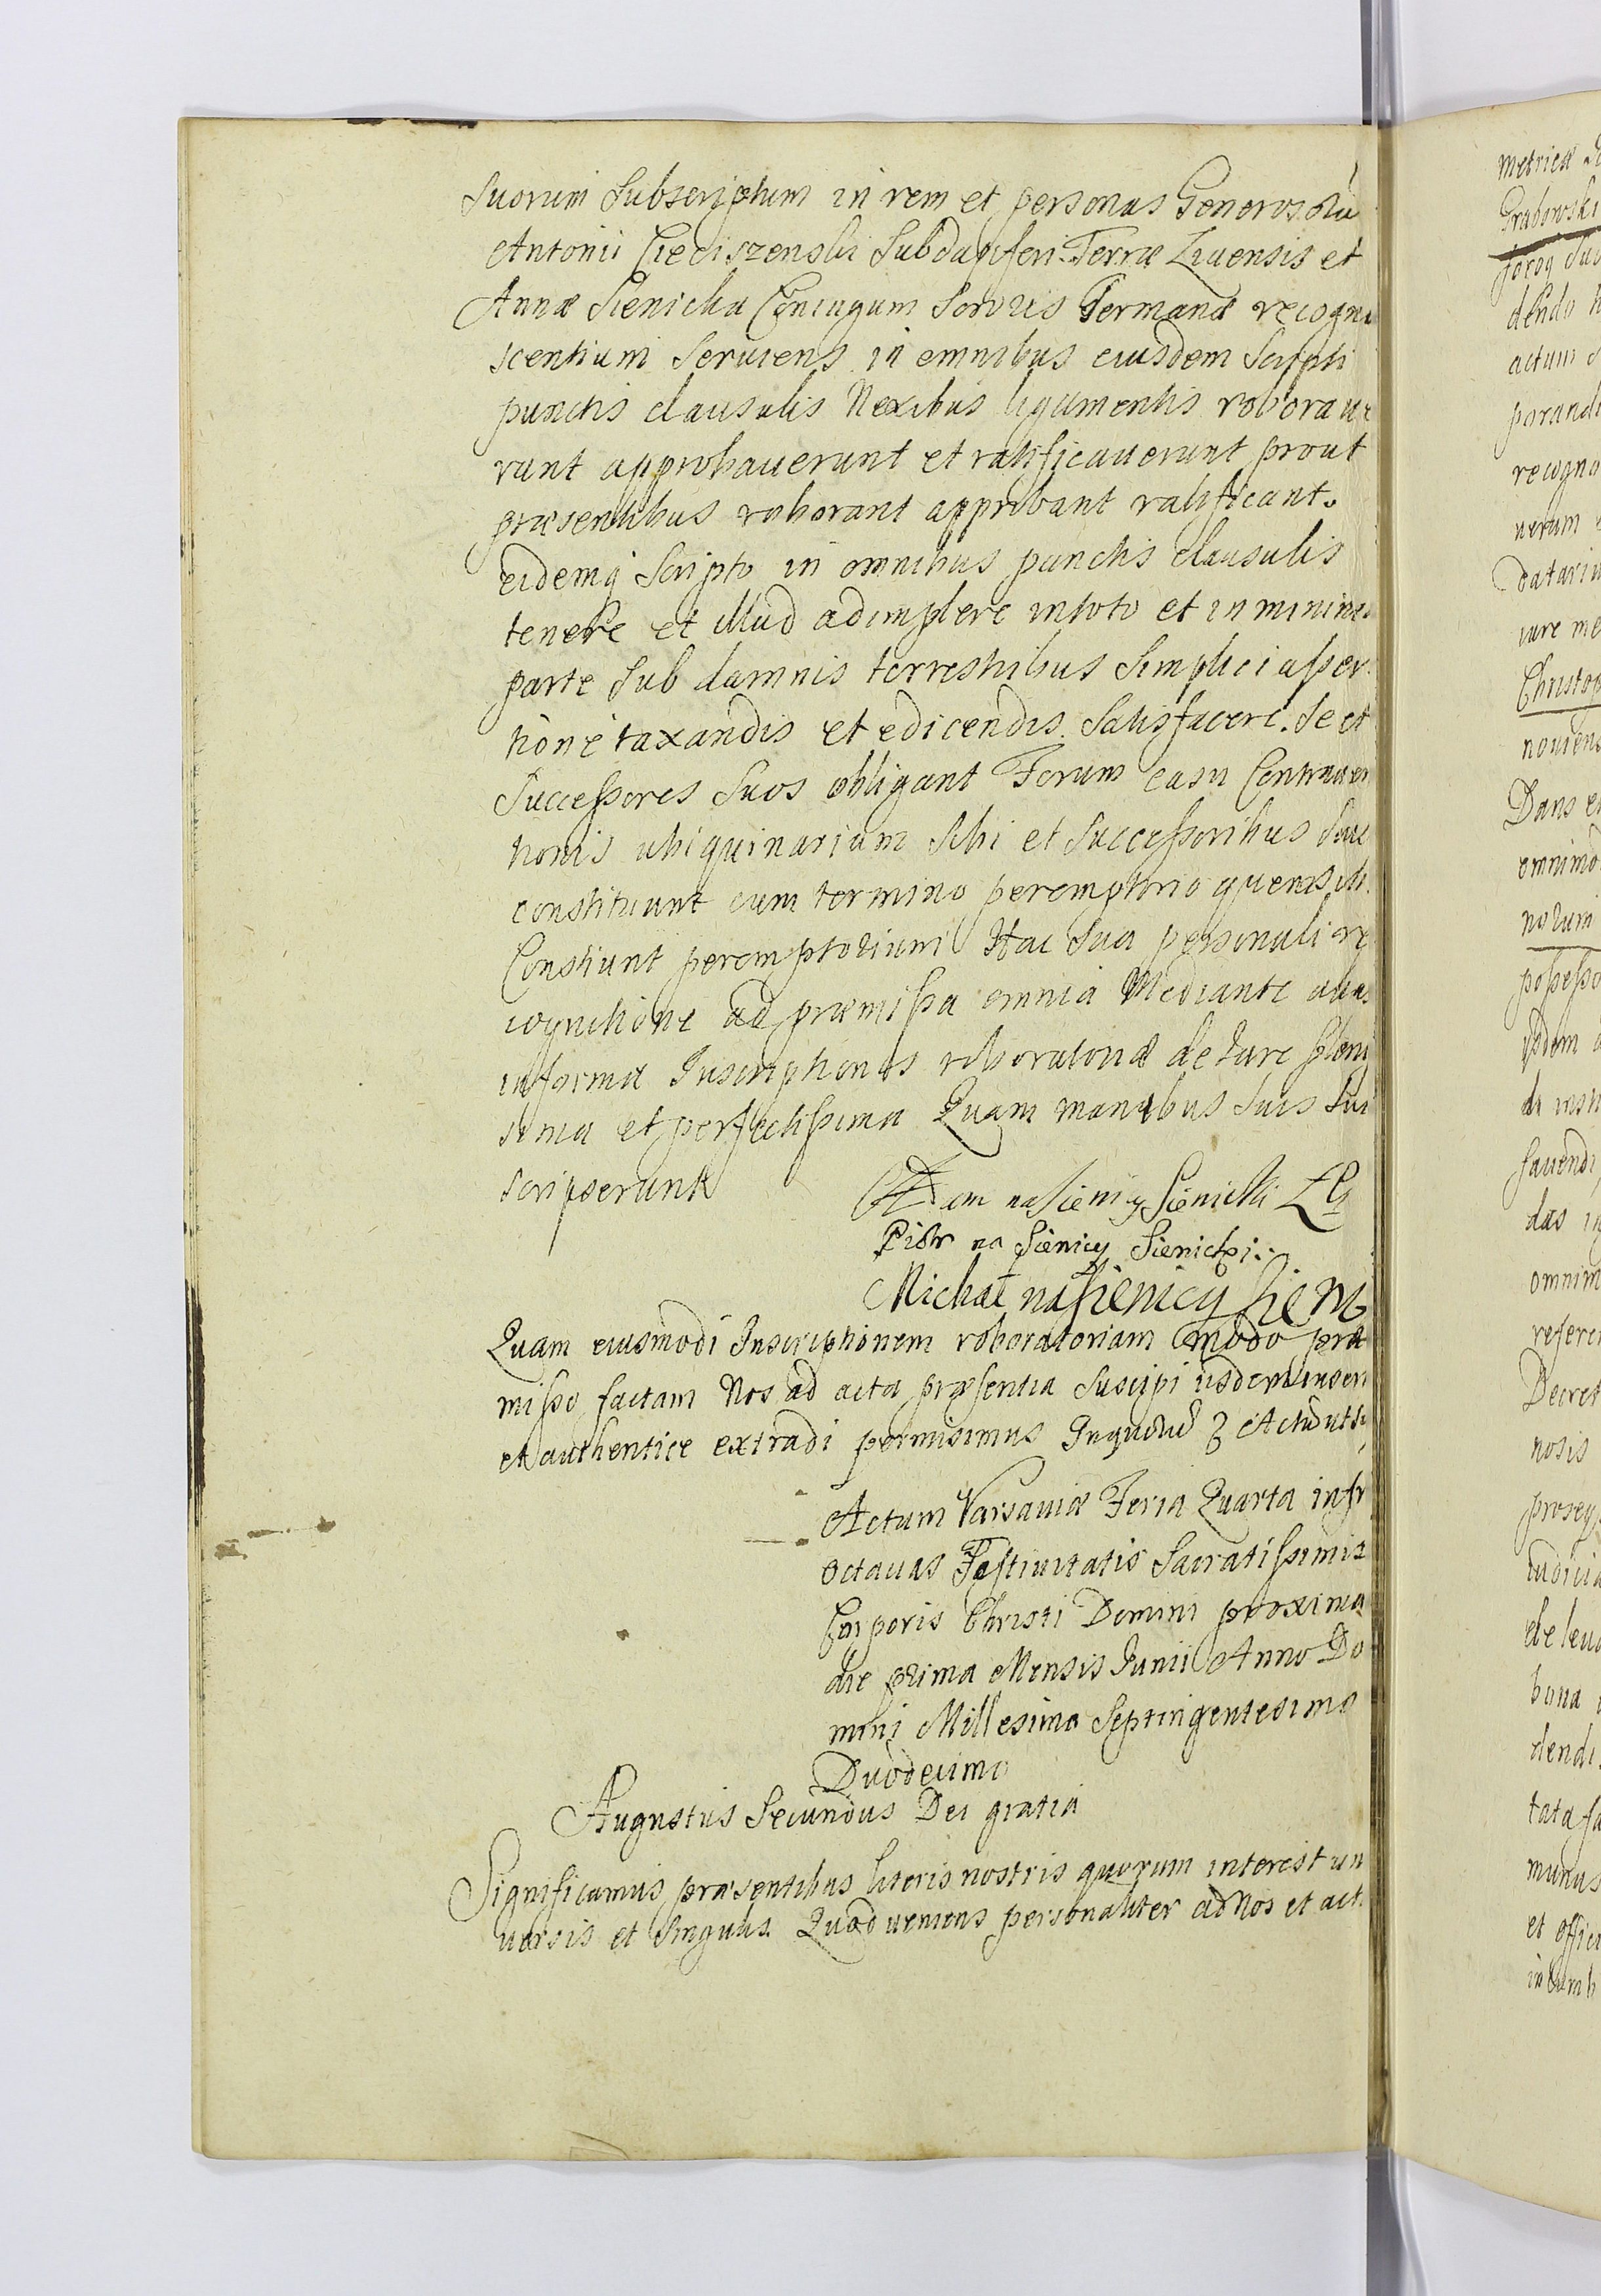 Suorum Subscriptum in rem et personas Generosorũ
Antonii Cieciszenski Subdapiferi Terræ Livensis et
Annæ Sienicka Coniugum Sororis Germanæ recogni
scentium Seruiens in omnibus eiusdem Scripti
punctis clausulis Nexibus ligamentis roboraue
runt approbauerunt et ratificauerunt prout
præsentibus roborant approbant ratificant.
eidemq Scripto in omnibus punctis clausulis
tenere et illud adimplere in toto et in minima
parte Sub damnis terrestribus Simplici asser
tione taxandis et edicendis Satisfacere. Se et
Successores Suos obligant Forum casu Contrauen
tionis ubiquinarium Sibi et Successoribus Suis
constituunt cum termino peremptorio quem sibi
Constiunt peremptorium Hac Sua personali re
cognitione ad præmissa omnia Mediante alias
in forma Inscriptionis roboratoriæ de Iure pleni
sima et perfectissima Quam manibus Suis Sub
scripserunt
Adam na Sienicy Sienicki
Piotr na Sienicy Sienicki..
Michał na Sienicy Sieni
Quam eiusmodi Inscriptionem roboratoriam modo præ
misso factam Nos ad acta præsentia Suscipi iisdem inseri
et authentice extradi permisimus Inquorũ Actũ ut s
Actum Varsaviæ Feria Quarta infr
octauas Festiuitatis Sacratissimis
Corporis Christi Domini proxima
die prima Mensis Iunii Anno Do
mini Millesimo Septingentesimo
Duodecimo
Augustus Secundus Dei gratia
Significamus præsentibus literis nostris quorum interest un
uersis et Singulis. Quod veniens personaliter ad Nos et act.
metricæ
Grabowski
foroq Suo
dendo
actum
parandi
recogno
uerum
Datariu
iure me
Christop
nouiens
Dans ei
omnimo
norum
possesso
da inst
fauendi
das in
omnim
referen
Decret
nosis
proseq
iudicia
de leua
bona
dendi
tata fa
munus
et offici